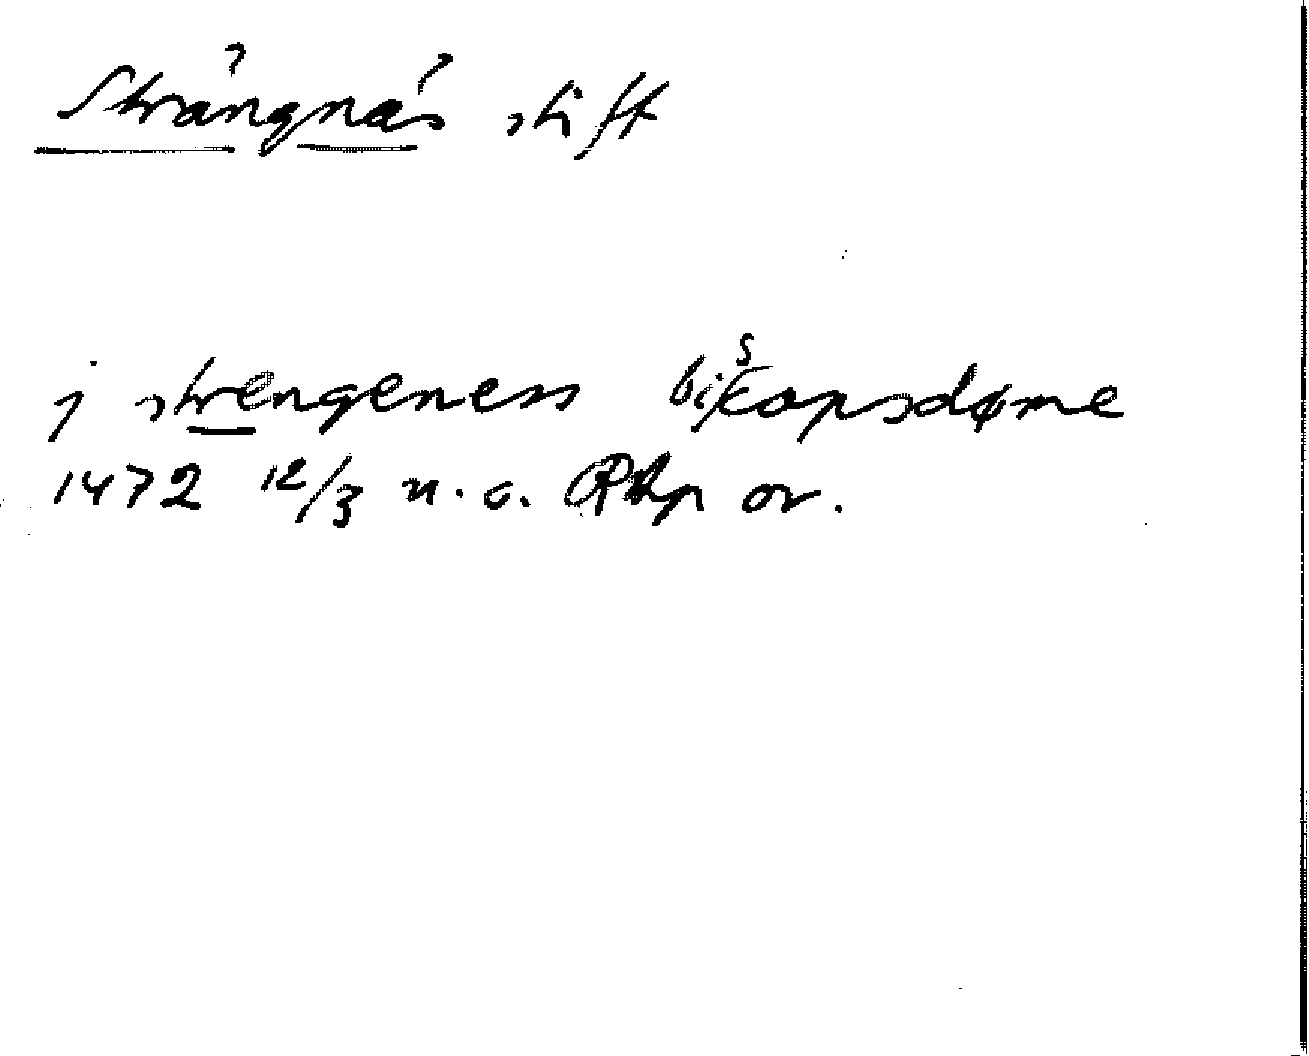 Strängnäs stift
j strengeness biscopsdøme
1472 12/3 u. o. RAp or.